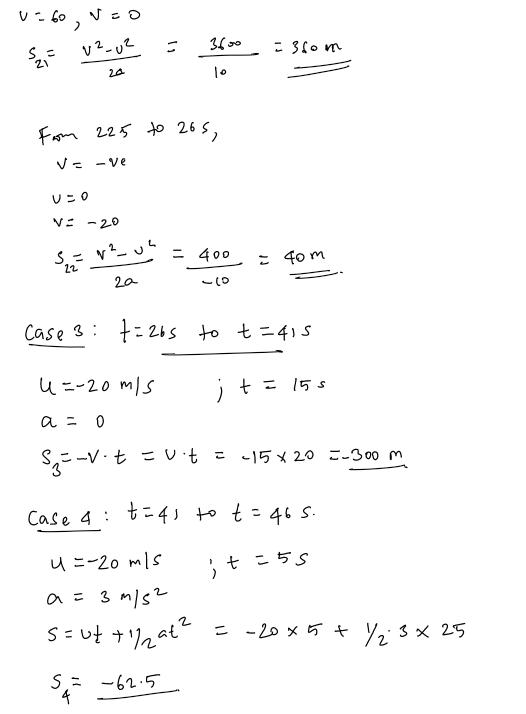 u = 60 , v = 0
S21 = v²-u² / 2a = 3600 / 10 = 360 m
From 22s to 26s,
v = -ve
u = 0
v = -20
S22 = v²-u² / 2a = 400 / -10 = 40 m
Case 3 : t=26s to t=41s
u = -20 m/s ; t = 15 s
a = 0
S3 = -v.t = u.t = -15 x 20 = -300 m
Case 4 : t=41 to t = 46 s.
u = -20 m/s ; t = 5s
a = 3 m/s²
S = ut + 1/2 at² = -20 x 5 + 1/2 . 3 x 25
S4 = -62.5